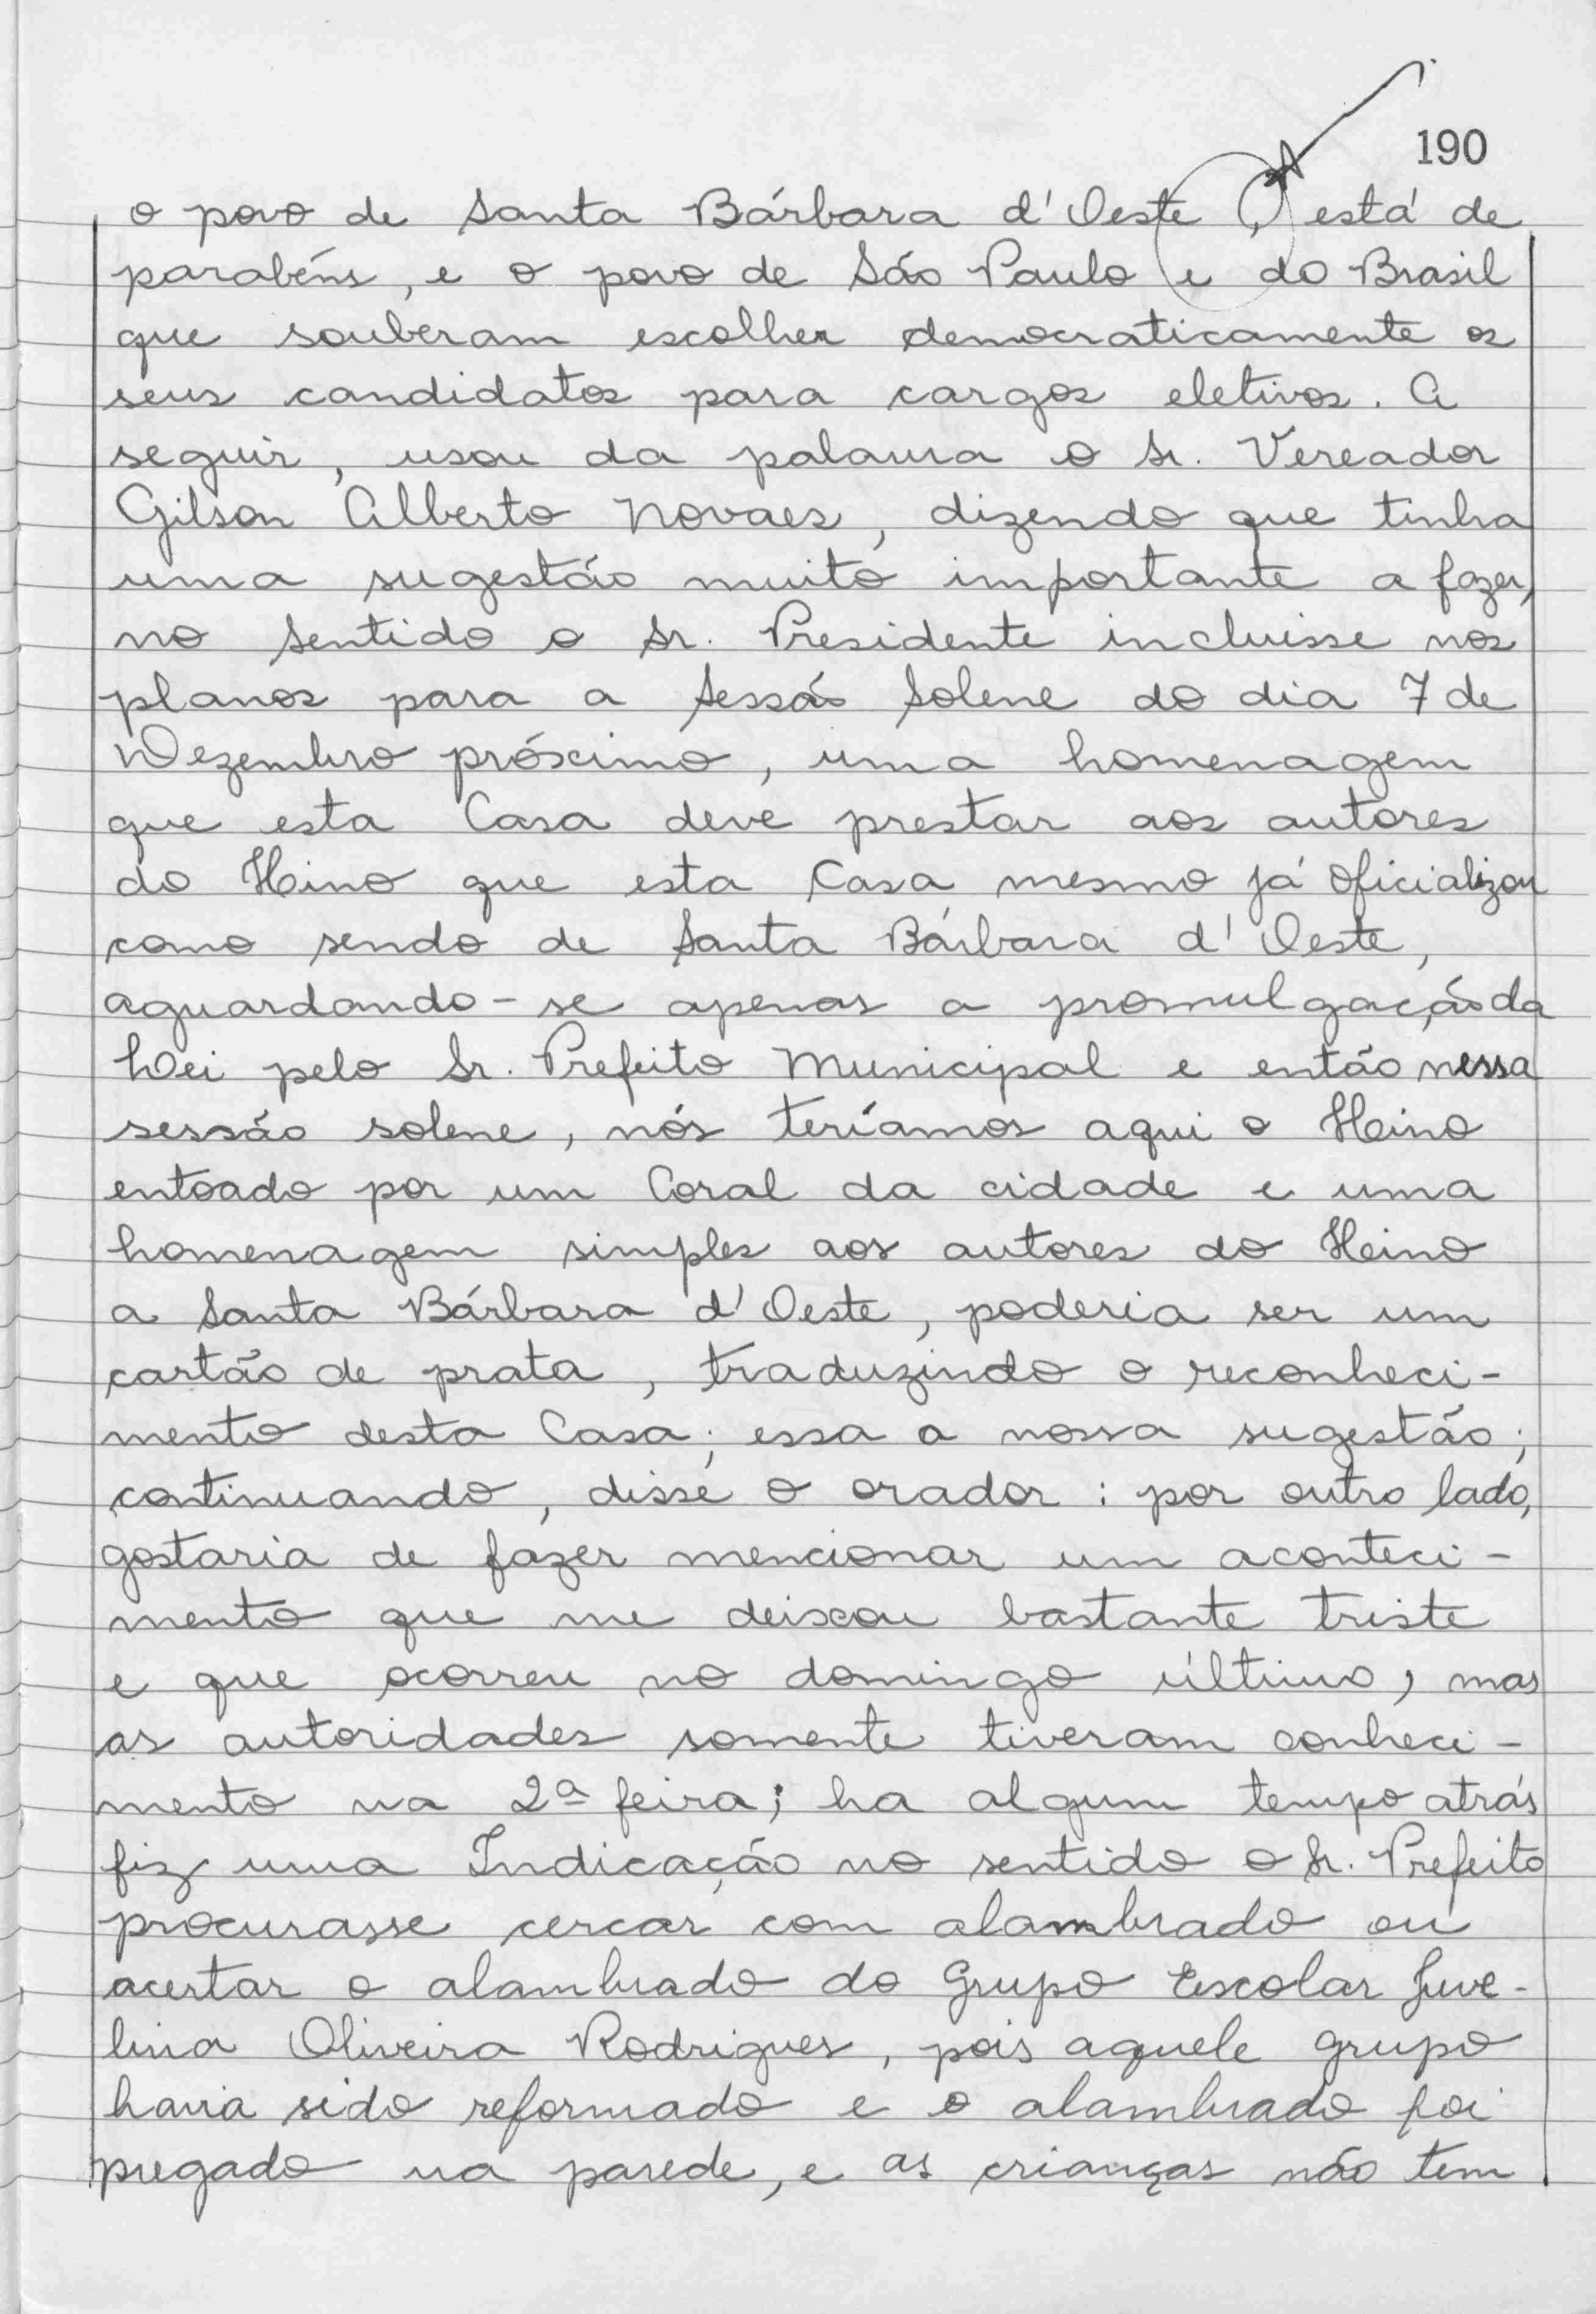 190
o povo de Santa Bárbara d'Oeste, está de
parabéns, e o povo de São Paulo e do Brasil
que souberam escolher democraticamente os
seus candidatos para cargos eletivos. A
seguir, usou da palavra o Sr. Vereador
Gilson Alberto Novaes, dizendo que tinha
uma sugestão muito importante a fazer,
no sentido o Sr. Presidente incluisse nos
planos para a Sessão Solene do dia 7 de
Dezembro próximo, uma homenagem
que esta Casa deve prestar aos autores
do Hino que esta Casa mesmo já oficializou
como sendo de Santa Bárbara d'Oeste,
aguardando-se apenas a promulgação da
Lei pelo Sr. Prefeito Municipal e então nessa
sessão solene, nós teríamos aqui o Hino
entoado por um Coral da cidade e uma
homenagem simples aos autores do Hino
a Santa Bárbara d'Oeste, poderia ser um
cartão de prata, traduzindo o reconheci-
mento desta Casa; essa a nossa sugestão;
continuando, disse o orador: por outro lado,
gostaria de fazer mencionar um aconteci-
mento que me deixou bastante triste
e que ocorreu no domingo último, mas
as autoridades somente tiveram conheci-
mento na 2ª feira; ha algum tempo atrás
fiz uma Indicação no sentido o Sr. Prefeito
procurasse cercar com alambrado ou
acertar o alambrado do Grupo Escolar Juve-
lina Oliveira Rodrigues, pois aquele grupo
havia sido reformado e o alambrado foi
pregado na parede, e as crianças não tem